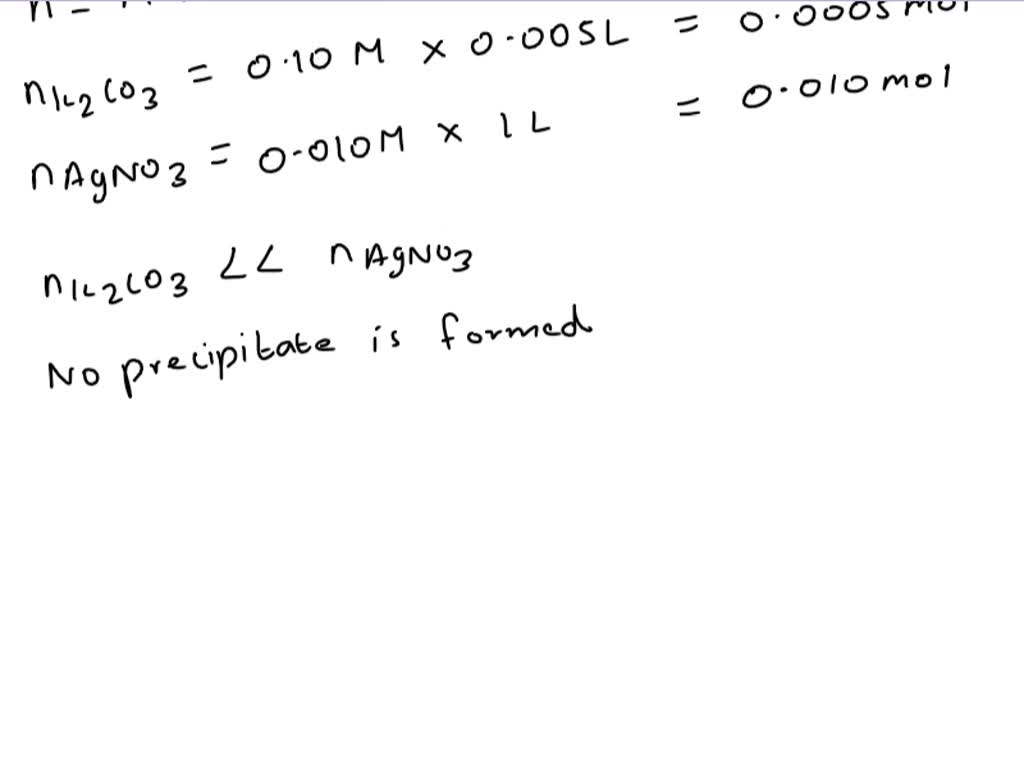 nK2CO3 = 0.10 M × 0.005L = 0.0005 mol
nAgNO3 = 0.010M × 1 L = 0.010 mol
nK2CO3 << nAgNO3
No precipitate is formed